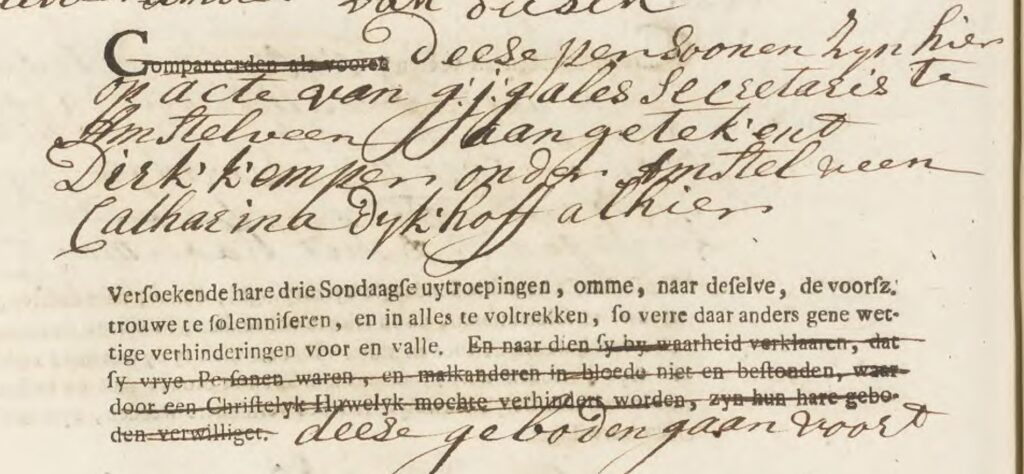 van
Compareerden als vooren deese persoonen Zyn hier
op acte van g:j:gales Secretaris te
Amstelveen aangetekent
Dirk kemper onder Amstelveen
Catharina Dykhoff alhier
Versoekende hare drie Sondaagse uytroepingen, omme, naar deselve, de voorsz.
trouwe te solemniseren, en in alles te voltrekken, so verre daar anders gene wet-
tige verhinderingen voor en valle. En naar dien sy by waarheid verklaaren, dat
sy vrye Personen waren, en malkanderen in bloede niet en bestonden, waar-
door een Christelyk Huwelyk mochte verhindert worden, zyn hun hare gebo-
den verwilliget. deese geboden gaan voort